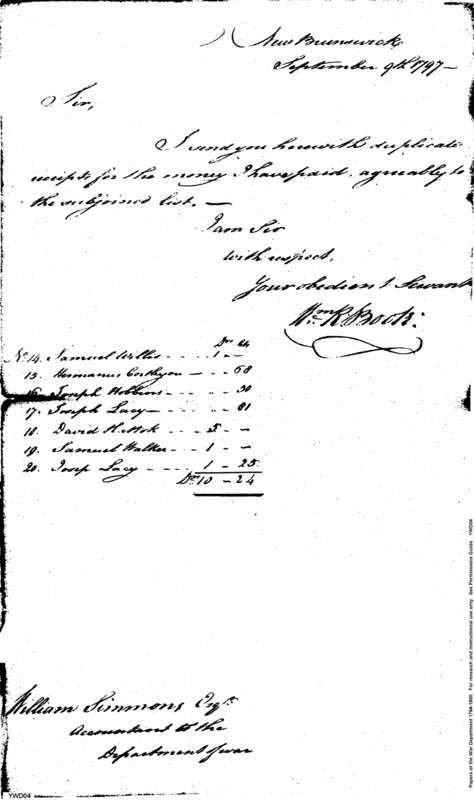 New Brunswick
September 9th 1797 —
Sir,
I send you herewith duplicate
receipts for the money I have paid, agreably to
the subjoined list. —
I am Sir
with respect,
Your obedient Servant
Wm R Book:
Drs Cts
No 14. Samuel Willis - - - 1 - —
15. Hermanus - - 68
16. Joseph Robbins - - - 30
17. Joseph Lacy - - - 81
18. David - - - 5 - —
19. Samuel Walker - - 1 - —
20. Josep Lacy - - - - 1 - 25
Drs 10 - 24
William Simmons Esqr
Accountant to the
Department of war
YWD04
Papers of the War Department 1784-1800. For research and instructional use only. See Permissions Guide. YWD04